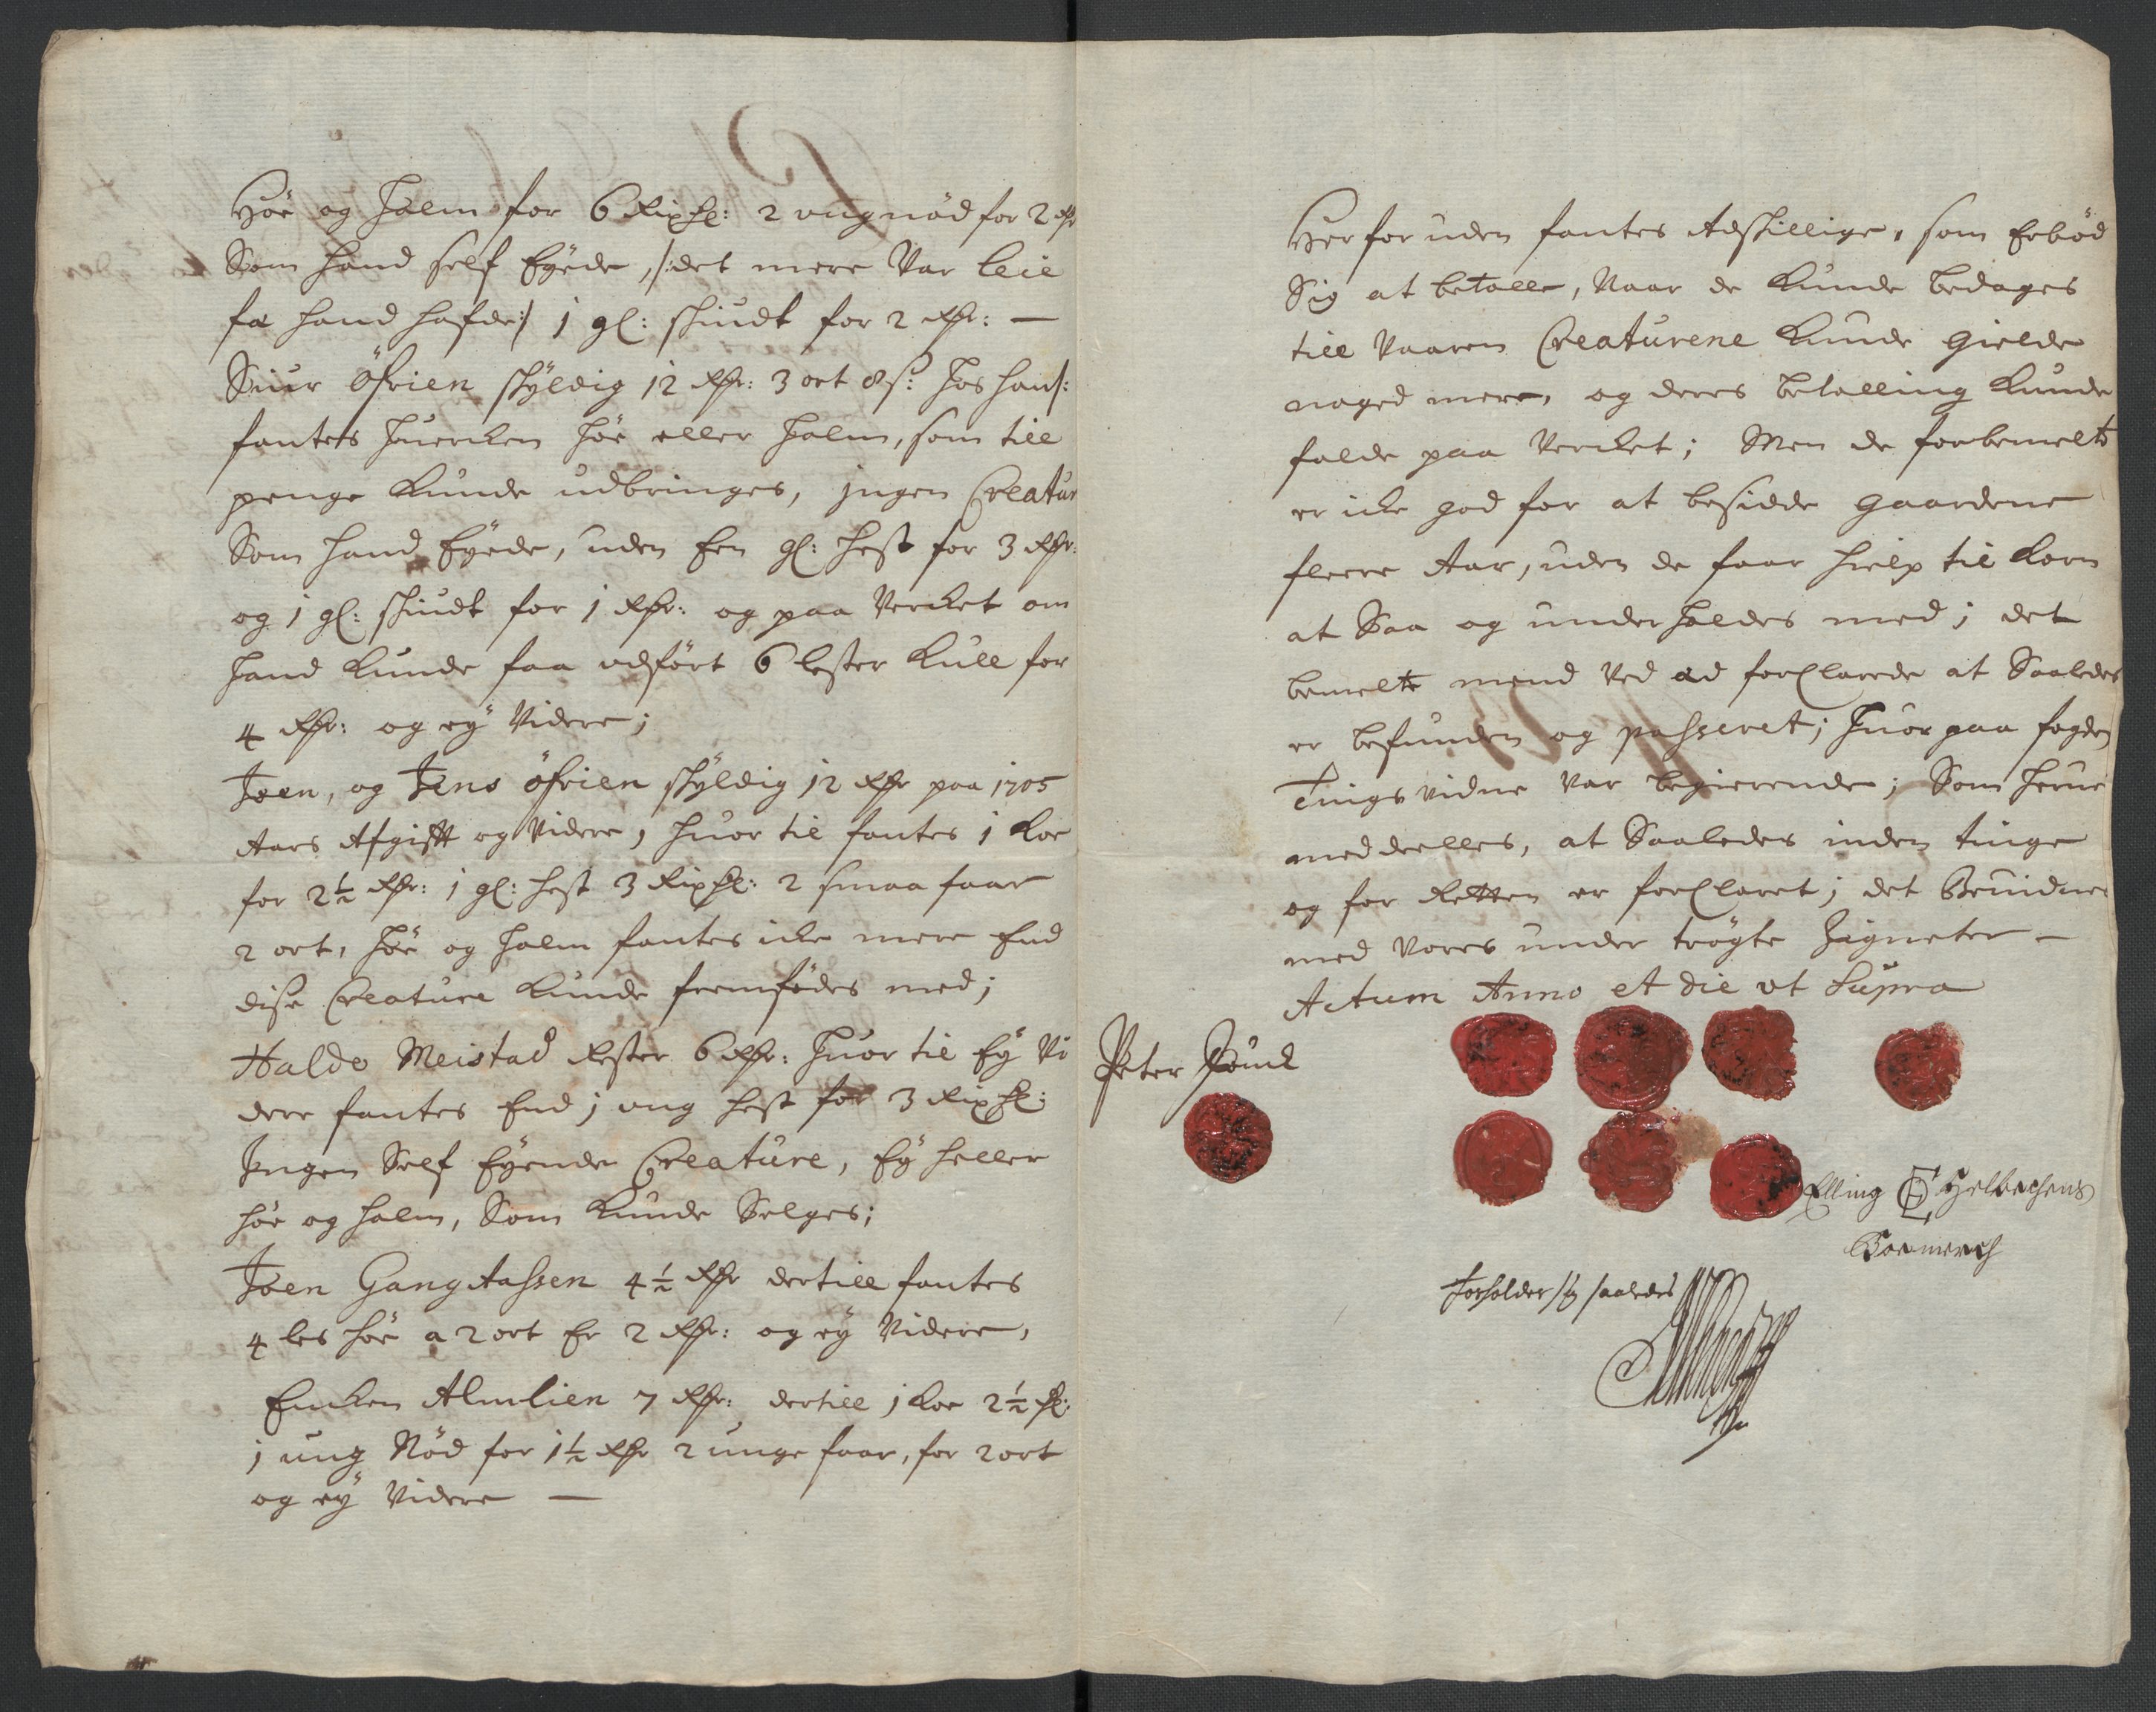 Høe og Halm for 6 Rixdl: 2 ungnød for 2 Rdr
Som hand self Eyede, /:det mere Var leie
fæ hand hafde:/ 1 gl: skiudt for 2 Rdr: —
Siur Öfrien skyldig 12 Rdr: 3 ort 8 s: Hos hans:
fantes huercken høe eller halm, som till
penge kunde udbringes, jngen Creatur
Som hand Eyede, uden Een gl: hest for 3 Rdr:
og 1 gl: skiudt for 1 Rdr: og paa Vercket om
hand kunde faa udført 6 lester kull for
4 Rdr: og ey Videre;
Joen, og Jens öfrien skyldig 12 Rdr paa 1705
Aars Afgifft og Videre, huor til fantes 1 koe
for 2½ Rdr: 1 gl: hest 3 Rixdl: 2 smaa faar
2 ort, høe og halm fantes icke mere End
disse Creature kunde fremfødes med;
Haldo Meistad Rester 6 Rdr: huor til Ey Vi
dere fantes End 1 ung hest for 3 Rixdl:
Jngen Self Eyende Creature, Ey heller
høe og halm, Som kunde Selges;
Joen Gangstassen 4½ Rdr dertill fantes
4 les høe a 2 ort Er 2 Rdr: og ey Videre,
Encken Almlien 7 Rdr: dertill 1 koe 2½ dl:
1 ung Nød for 1½ Rdr 2 unge faar, for 2 ort
og ey Videre —
Her foruden fantes Adskillige, som Erbød
Sig at betalle, Naar de kunde bedages
till Vaaren Creaturene kunde gielde
noged mere, og deres betalling kunde
falde paa Vercket; Men de forbemelte
er icke god for at besidde gaardene
fleere Aar, uden de faar hielp til korn
at Saa og underholdes med; det
bemelte mend Ved æd forClarede at Saaledes
er befunden og passeret; Huor paa fogden
Tingsvidne Var begierende; Som herue
meddeelles, at Saaledes inden tinge
og for Retten er forClaret; det Beuidnes
med Vores under trøgte Zigneter —
Actum Anno et die ut Supra
Peter
Elling Helbechens
Boemerch
Forholder sig saaledes